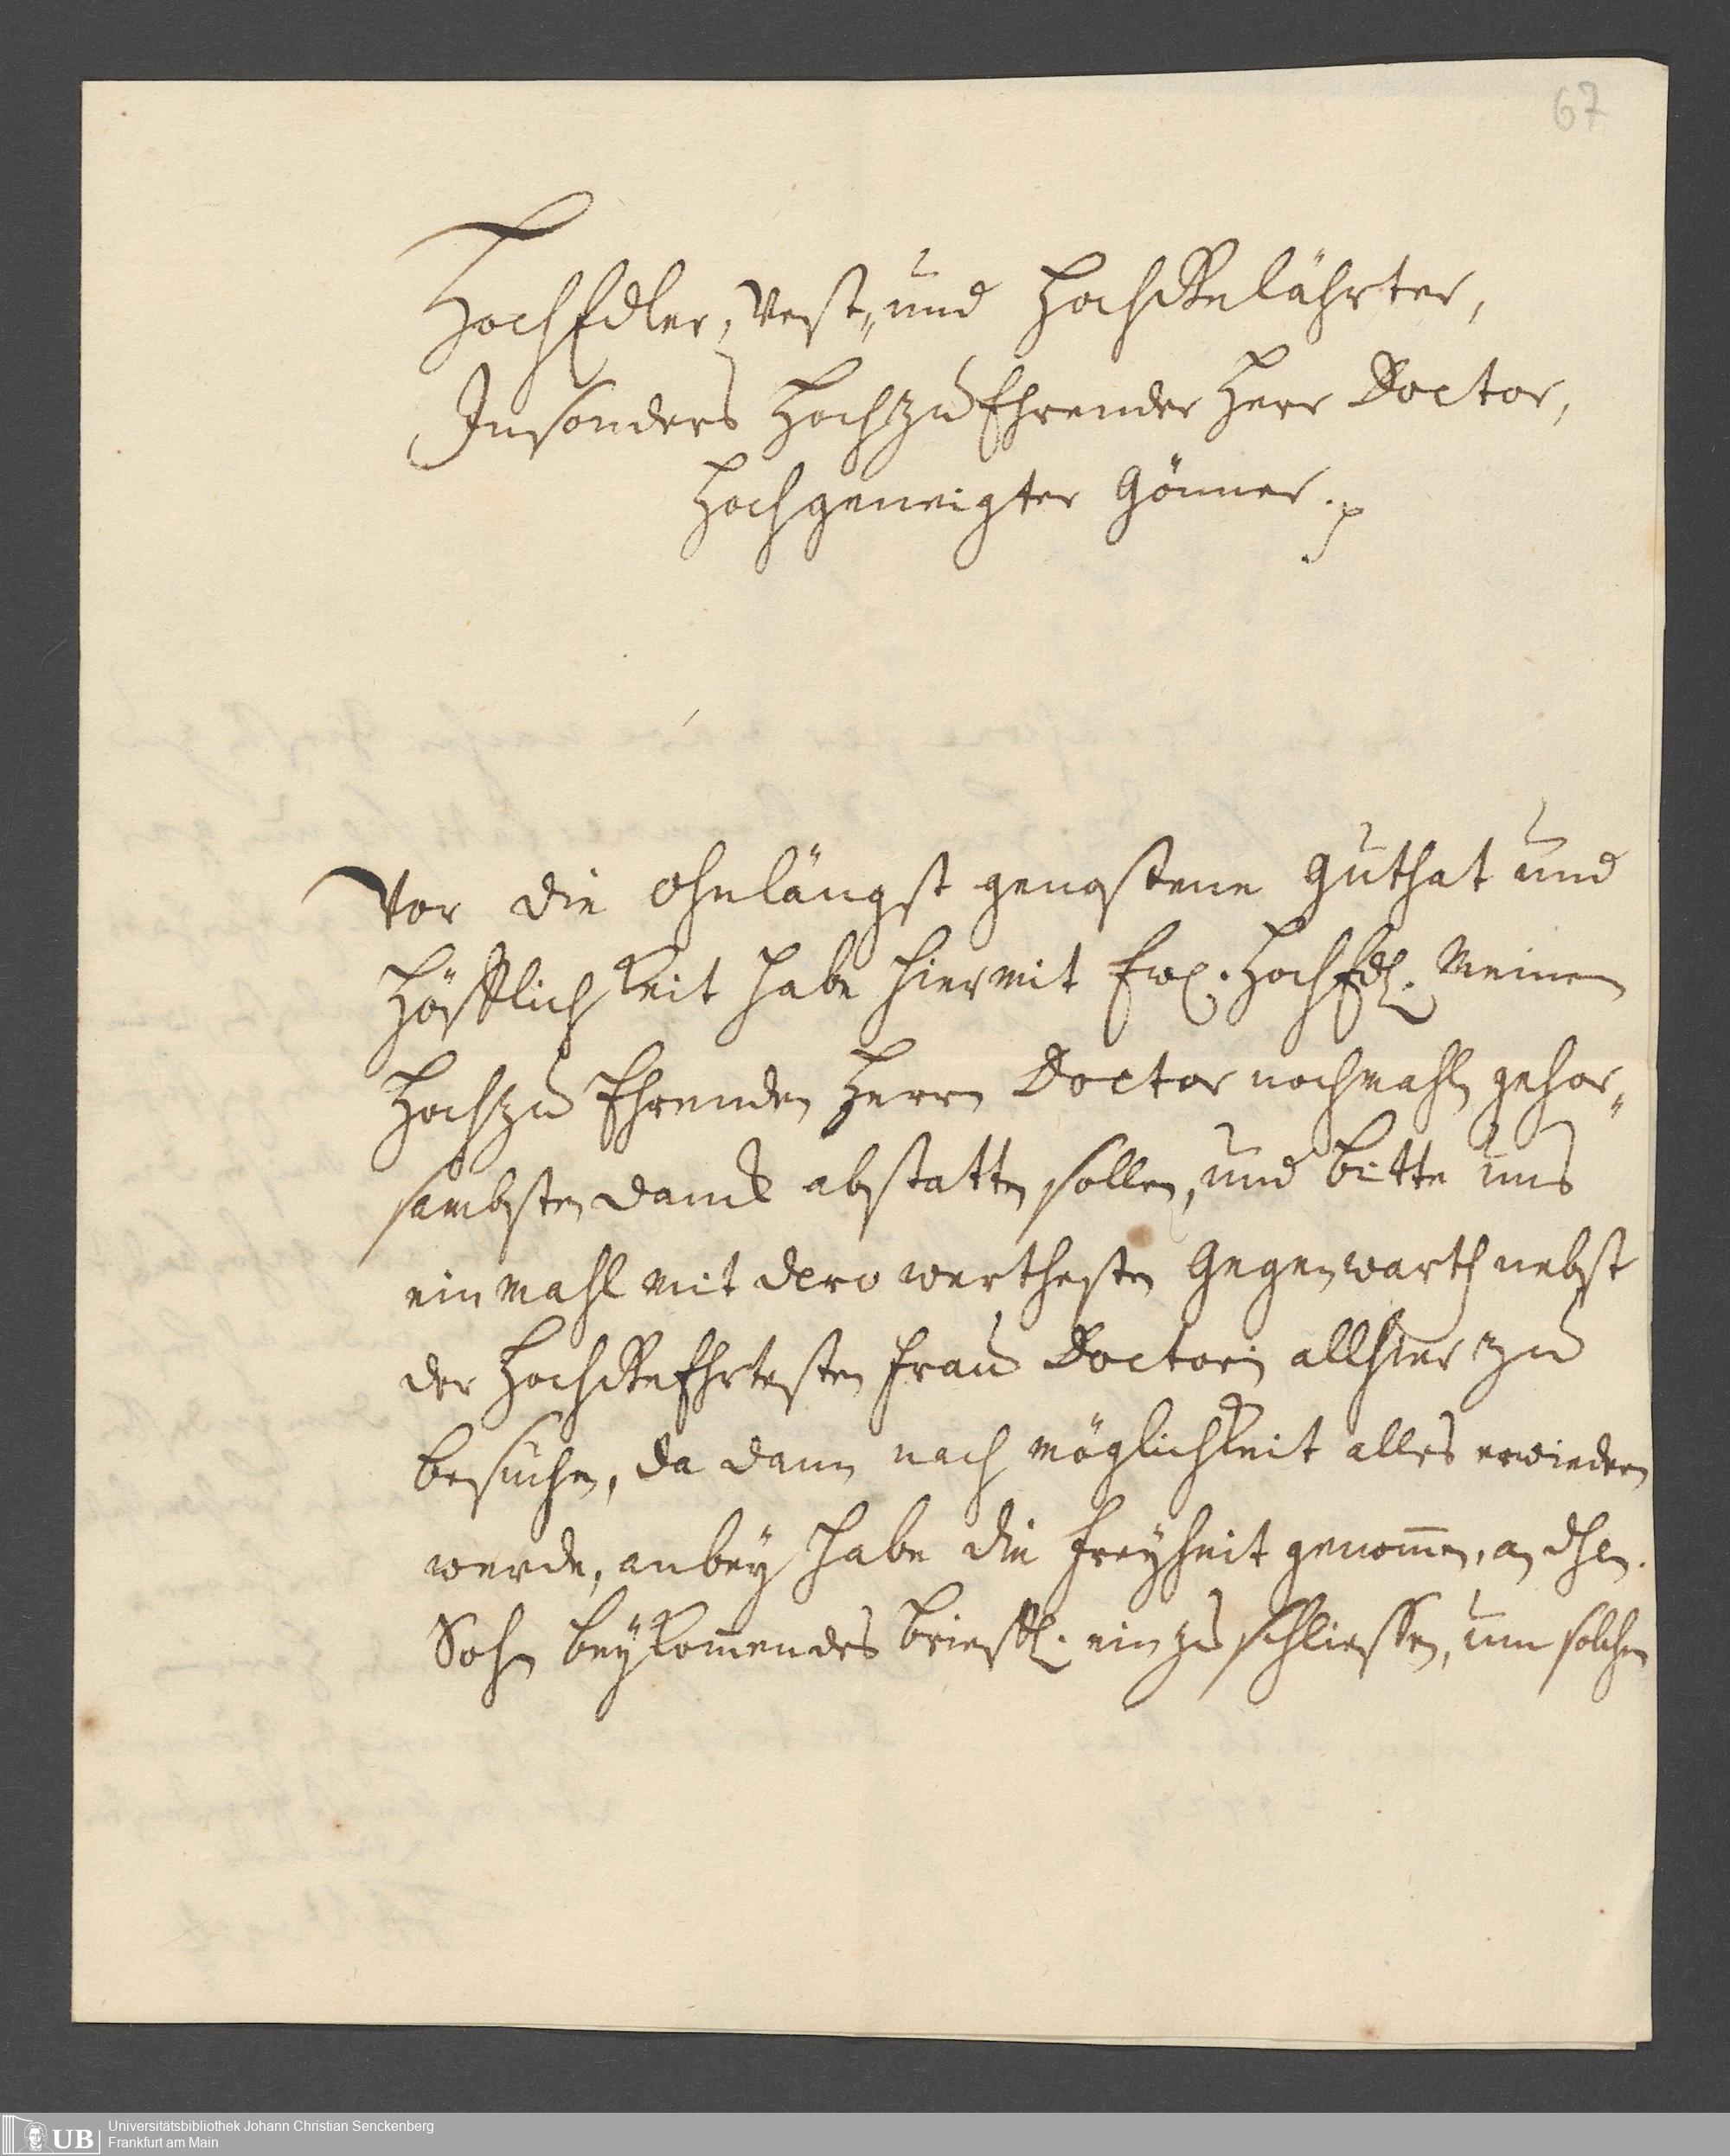 67
HochEdler, Vest„ und HochGelährter,
Insonders HochzuEhrender Herr Doctor,
Hochgeneigter Gönner. p
Vor die ohnlängst genoßene guthat und
Höfflichkeit habe hiermit Ew. HochEdl. Meinem
Hochzu Ehrenden Herrn Doctor nochmahls gehor„
sambsten danck abstatten sollen, und bitte uns
einmahl mit dero werthesten Gegenwarth nebst
der HochGeEhrtesten Frau Doctorin allhier zu
besuchen, da dann nach möglichkeit alles erwiedern
werde, anbey habe die Freyheit genom̅en, an
Sohn beykom̅endes briefl. einzuschliessen, um solchen
UB Universitätsbibliothek Johann Christian Senckenberg
Frankfurt am Main